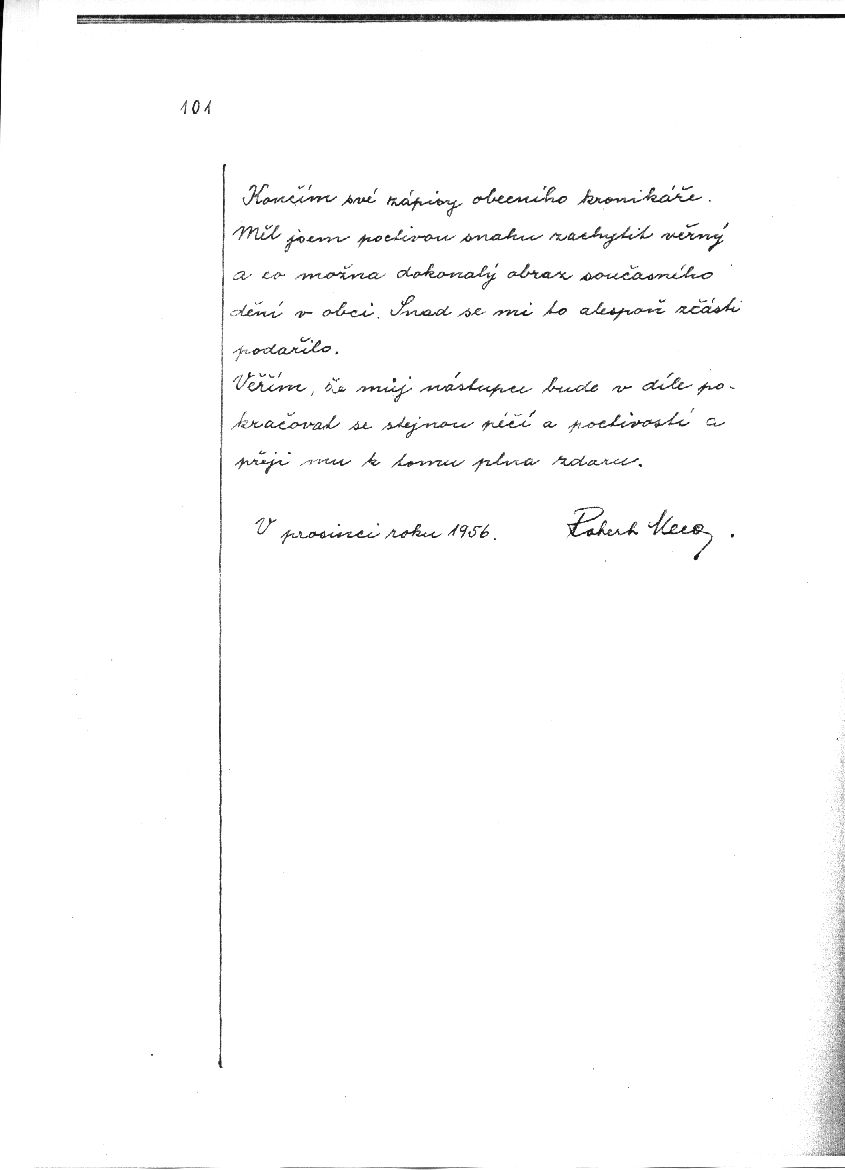 101
Končím své zápisy obecního kronikáře.
Měl jsem poctivou snahu zachytit věrný
a co možna dokonalý obraz současného
dění v obci. Snad se mi to alespoň zčásti
podařilo.
Věřím, že můj nástupce bude v díle po-
kračovat se stejnou péčí a poctivostí a
přeji mu k tomu plna zdaru.
V prosinci roku 1956. Robert